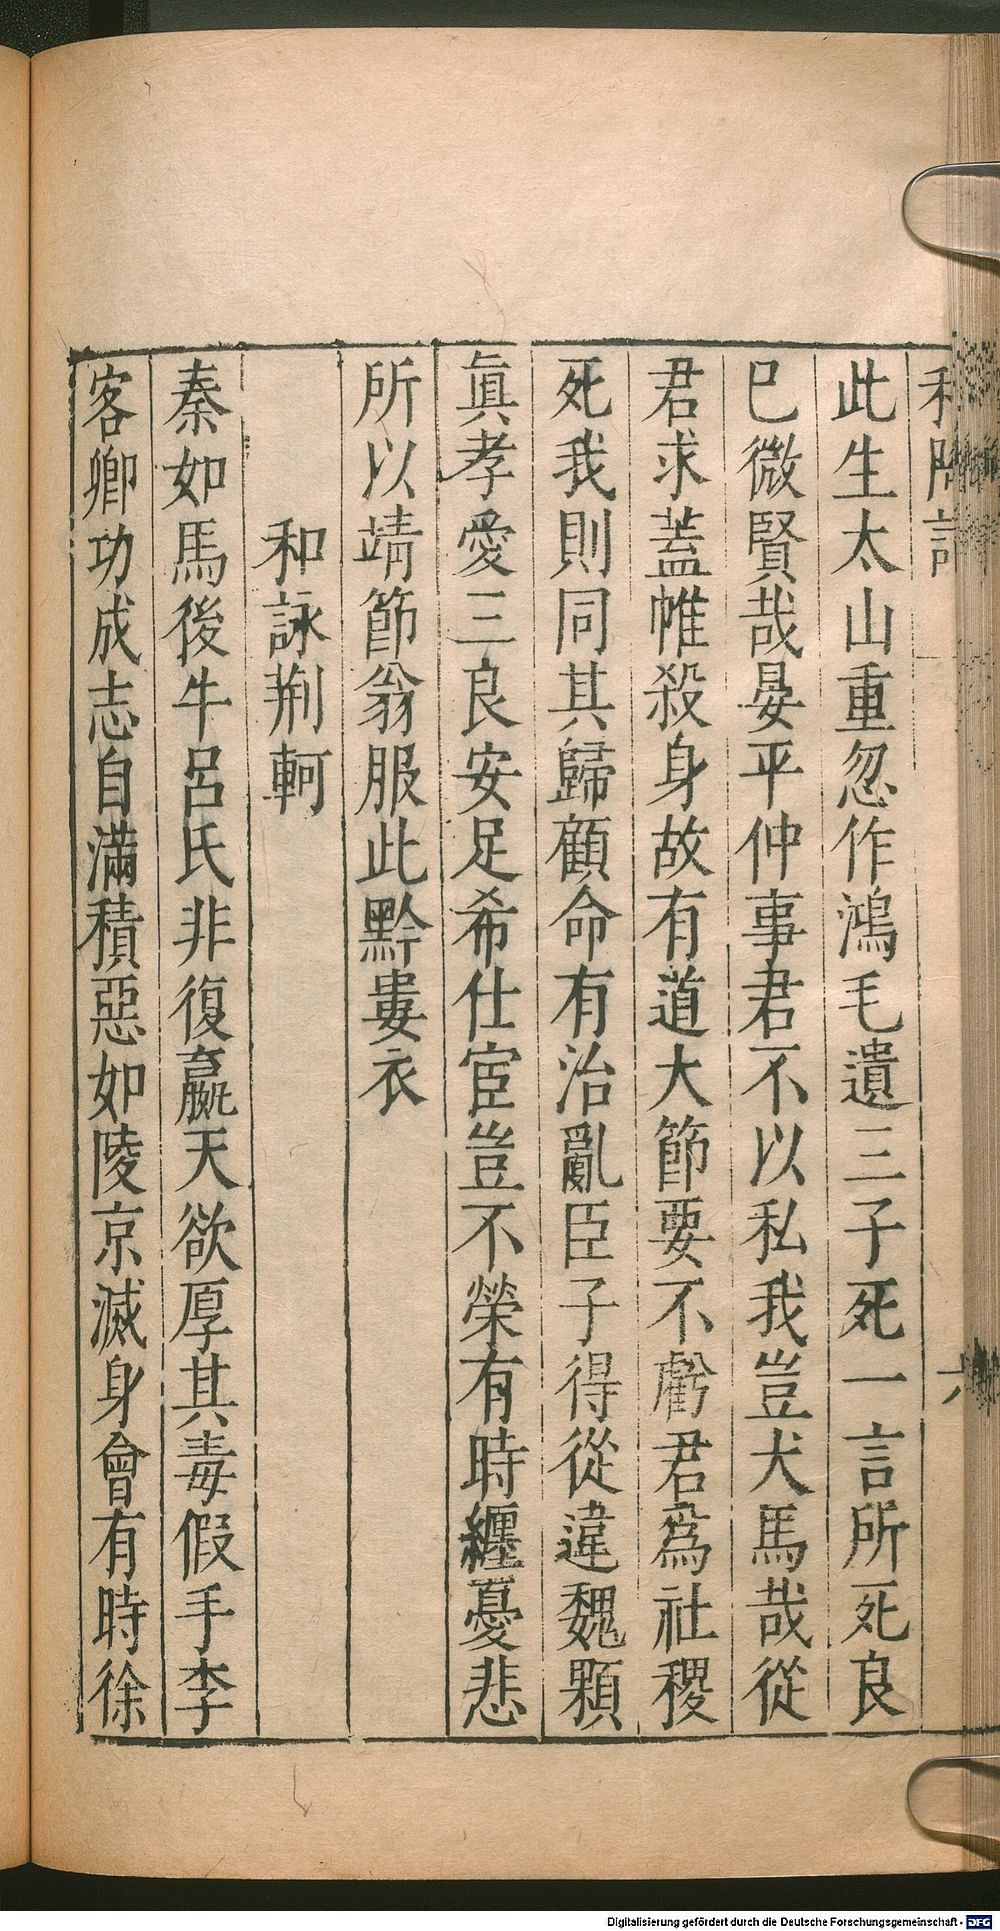 和陶詩
六
此生太山重忽作鴻毛遺三子死一言所死良
已微賢哉晏平仲事君不以私我豈犬馬哉從
君求蓋帷殺身故有道大節要不虧君爲社稷
死我則同其歸顧命有治亂臣子得從違魏顆
眞孝愛三良安足希仕宦豈不榮有時纏憂悲
所以靖節翁服此黔婁衣
和詠荆軻
秦如馬後牛呂氏非復嬴天欲厚其毒假手李
客卿功成志自滿積惡如陵京滅身會有時徐
Digitalisierung gefördert durch die Deutsche Forschungsgemeinschaft - DFG